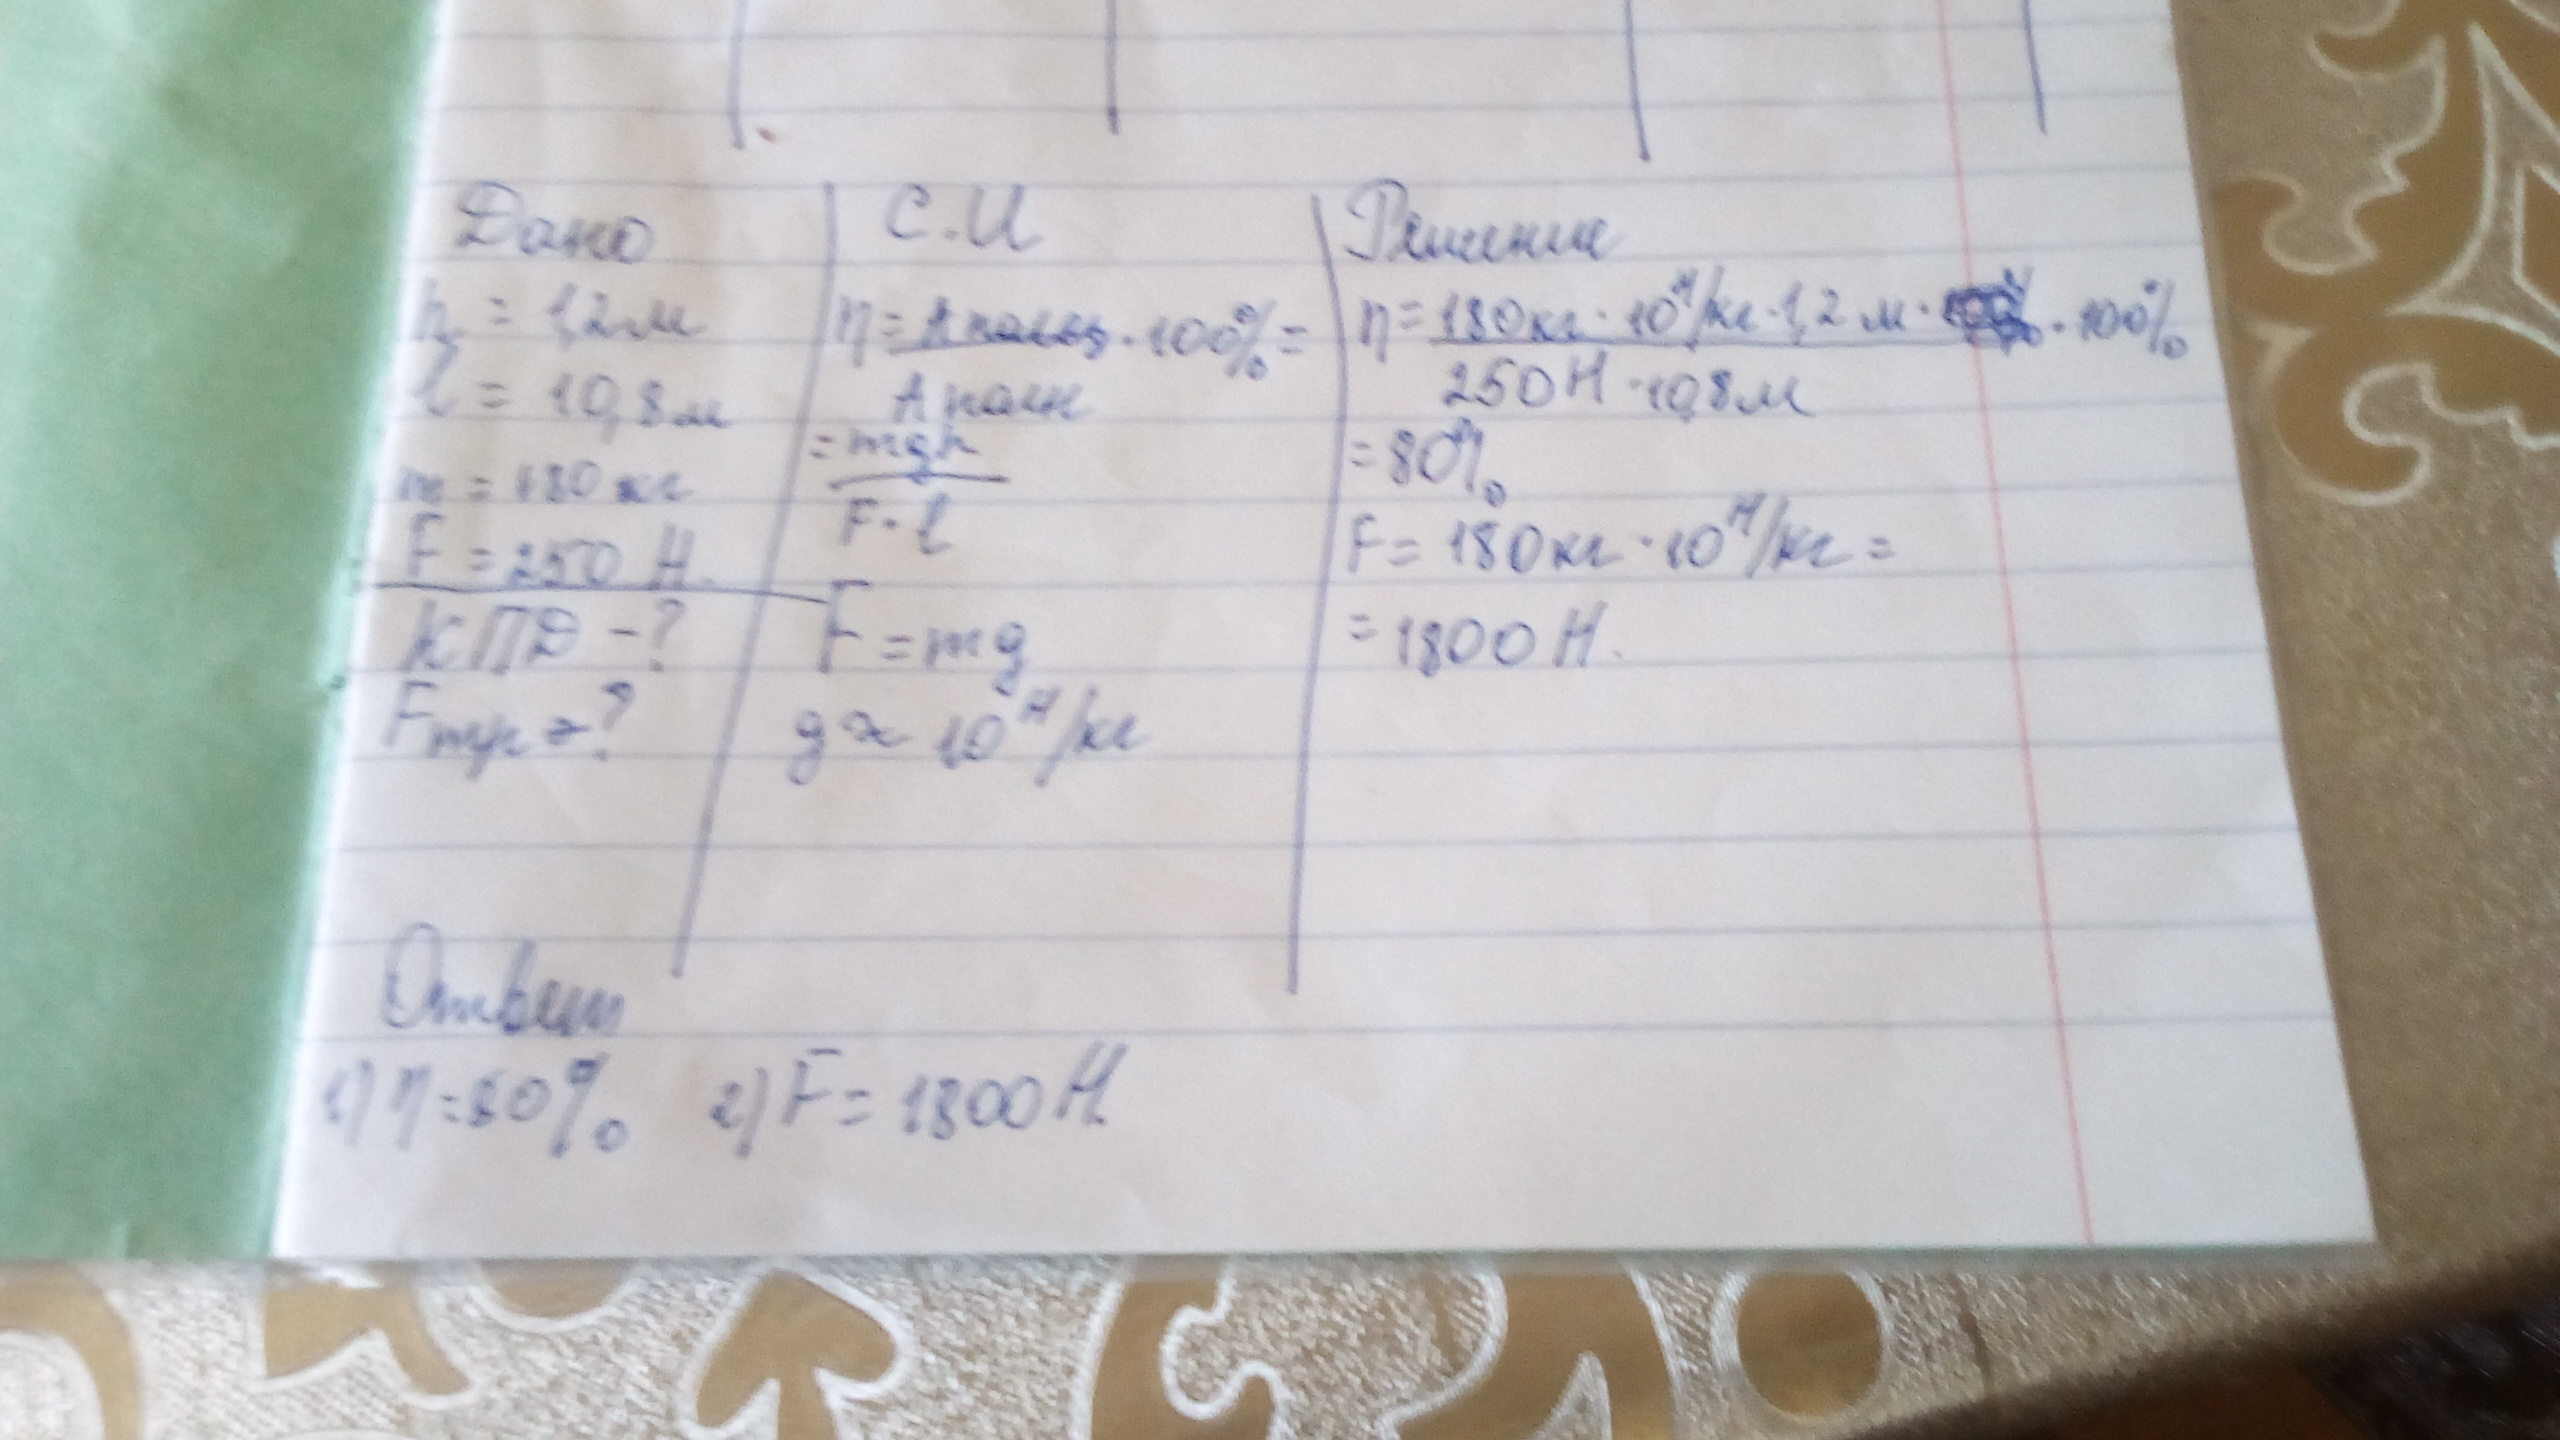 Дано
h = 1,2 м
l = 10,8 м
m = 180 кг
F = 250 Н.
КПД - ?
Fтр - ?
С.И
η = Aполез · 100% =
Aполн
= mgh
F · l
F = mg
g ≈ 10 Н/кг
Решение
η = 180 кг · 10 Н/кг · 1,2 м · · 100%
250 Н · 10,8 м
= 80%
F = 180 кг · 10 Н/кг =
= 1800 Н.
Ответ
1) η = 80% 2) F = 1800 Н.